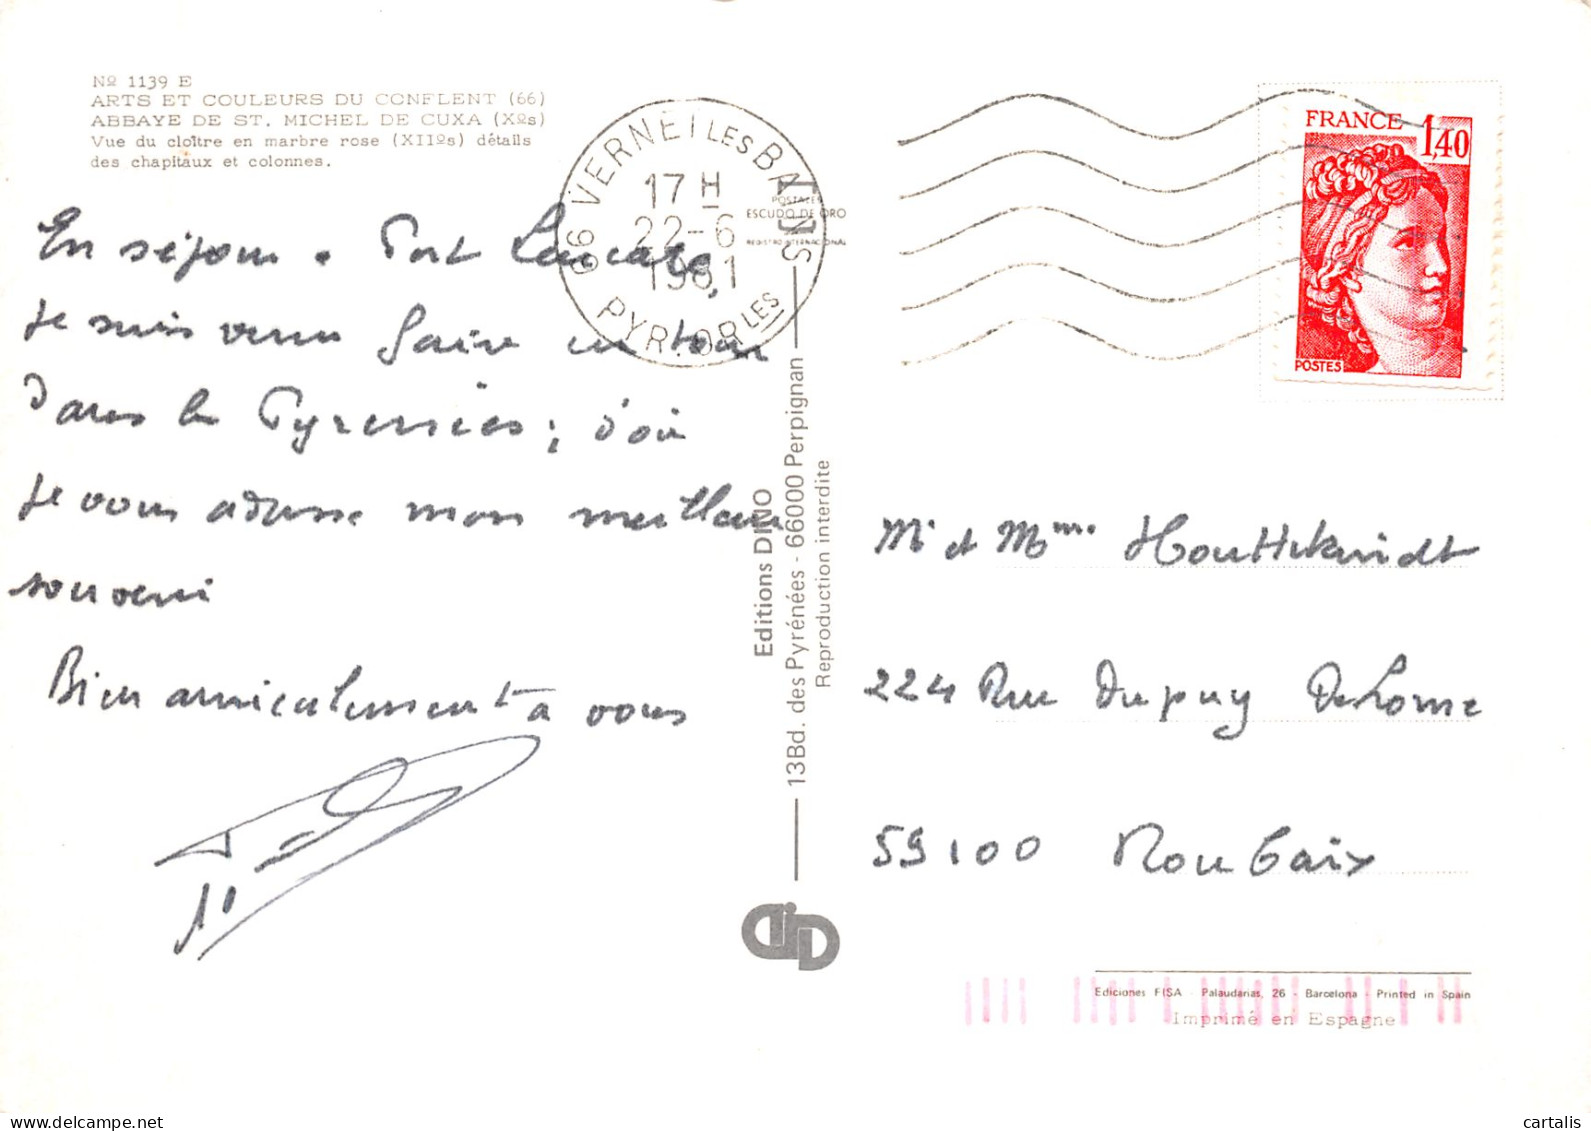 Nº 1139 E
ARTS ET COULEURS DU CONFLENT (66)
ABBAYE DE ST. MICHEL DE CUXA (Xºs)
Vue du cloître en marbre rose (XIIºs) détails
des chapitaux et colonnes.
En séjour a Port Leucate,
Je suis venu faire un tour
Dans les Pyrennées; d'où
Je vous adresse mon meilleur
souvenir
Bien amicalement à vous
66 VERNET LES BAINS
17 H
22-6
1981
PYR. OR LES
POSTALES
ESCUDO DE ORO
REGISTRO INTERNACIONAL
Editions DINO
13Bd. des Pyrénées - 66000 Perpignan
Reproduction interdite
FRANCE 1,40
POSTES
Mr et Mme Houttekindt
224 Rue Dupuy De Lome
59100 Roubaix
DINO
Ediciones FISA - Palaudarias, 26 - Barcelona - Printed in Spain
Imprimé en Espagne
cartalis